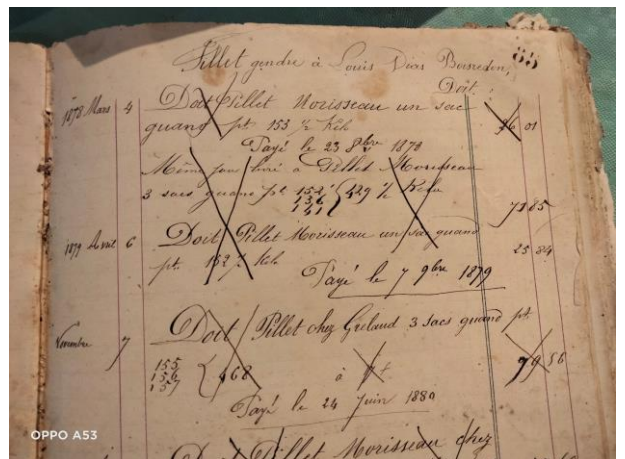 85
Pillet gendre à Louis Dias Boisredon,
Doit :
1878 Mars 4 Doit Pillet Morisseau un sac
guano pt 153 ½ Kilo 26 01
Payé le 23 8bre 1878
Même jour livré à Pillet Morisseau
3 sacs guano pt 152 429 ½ Kilo
136
141
73 85
1879 Avril 6 Doit Pillet Morisseau un sac guano 25 84
pt. 152 Kilo
Payé le 7 9bre 1879
Novembre 7 Doit Pillet chez Grelaud 3 sacs guano pt
155
156 468 à 17 79 56
157
Payé le 24 Juin 1880
Doit Pillet Morisseau chez
OPPO A53